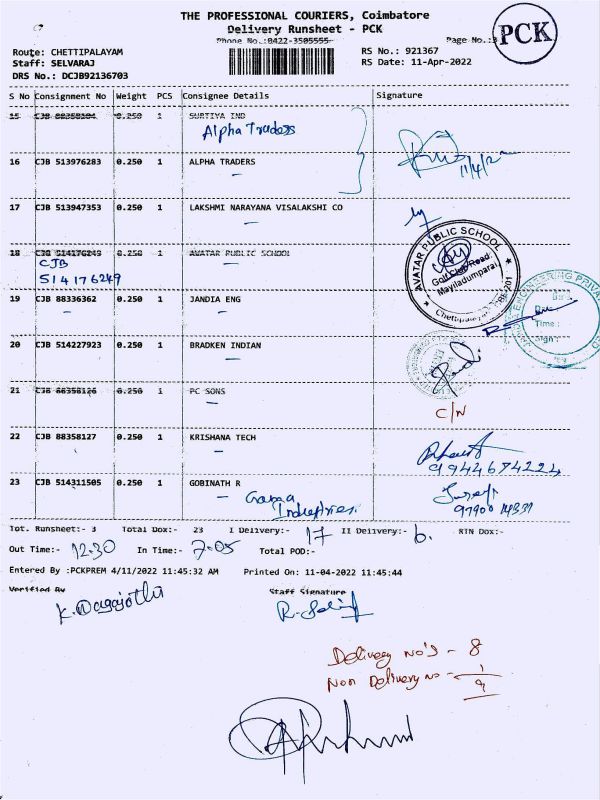 THE PROFESSIONAL COURIERS, Coimbatore
Delivery Runsheet - PCK
Phone No.:0422-3505555
Page No.:3
PCK
Route: CHETTIPALAYAM
RS No.: 921367
Staff: SELVARAJ
RS Date: 11-Apr-2022
DRS No.: DCJB92136703
S No Consignment No Weight PCS Consignee Details Signature
15 CJB 88358104 0.250 1 SURTIYA IND
Alpha Traders
16 CJB 513976283 0.250 1 ALPHA TRADERS
11/4/2
17 CJB 513947353 0.250 1 LAKSHMI NARAYANA VISALAKSHI CO
18 CJB 514176249 0.250 1 AVATAR PUBLIC SCHOOL
CJB
514176249
AVATAR PUBLIC SCHOOL
Golf Club Road,
Mayiladumparai
19 CJB 88336362 0.250 1 JANDIA ENG
Date
Time :
Sign :
20 CJB 514227923 0.250 1 BRADKEN INDIAN
21 CJB 88358126 0.250 1 PC SONS
C/N
22 CJB 88358127 0.250 1 KRISHANA TECH
9944674224
23 CJB 514311505 0.250 1 GOBINATH R
Industries
Tot. Runsheet:- 3 Total Dox:- 23 I Delivery:- 17 II Delivery:- 6. RTN Dox:-
Out Time:- 12.30 In Time:- 7.05 Total POD:-
Entered By :PCKPREM 4/11/2022 11:45:32 AM Printed On: 11-04-2022 11:45:44
Verified By Staff Signature
Delivery No's - 8
Non Delivery no - 1
9